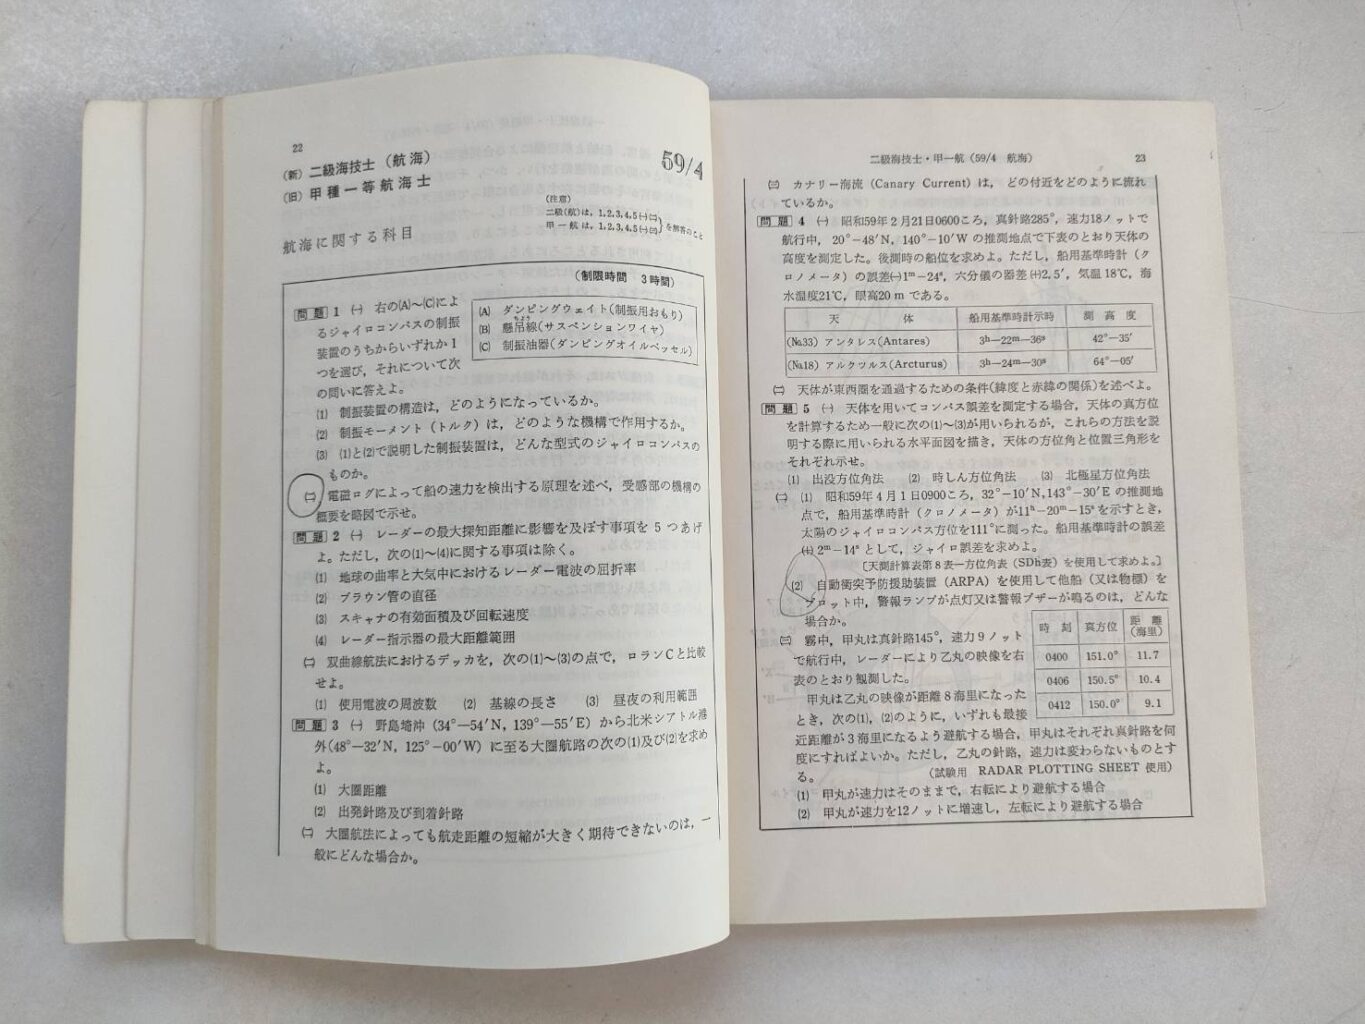 22
(新) 二級海技士(航海)
(旧) 甲種一等航海士
59/4
(注意)
二級(航)は, 1,2,3,4,5㈠㈡
甲一航は, 1,2,3,4,5㈠㈢
を解答のこと
航海に関する科目
(制限時間 3時間)
問題1 ㈠ 右の(A)~(C)によ
るジャイロコンパスの制振
装置のうちからいずれか1
つを選び,それについて次
の問いに答えよ。
(A) ダンピングウェイト(制振用おもり)
(B) 懸吊線(サスペンションワイヤ)
ちょう
(C) 制振油器(ダンピングオイルベッセル)
(1) 制振装置の構造は,どのようになっているか。
(2) 制振モーメント(トルク)は,どのような機構で作用するか。
(3) (1)と(2)で説明した制振装置は,どんな型式のジャイロコンパスの
ものか。
㈡ 電磁ログによって船の速力を検出する原理を述べ,受感部の機構の
概要を略図で示せ。
問題2 ㈠ レーダーの最大探知距離に影響を及ぼす事項を5つあげ
よ。ただし,次の(1)~(4)に関する事項は除く。
(1) 地球の曲率と大気中におけるレーダー電波の屈折率
(2) ブラウン管の直径
(3) スキャナの有効面積及び回転速度
(4) レーダー指示器の最大距離範囲
㈡ 双曲線航法におけるデッカを,次の(1)~(3)の点で,ロランCと比較
せよ。
(1) 使用電波の周波数 (2) 基線の長さ (3) 昼夜の利用範囲
問題3 ㈠ 野島埼沖(34°—54′N, 139°—55′E)から北米シアトル港
外(48°—32′N, 125°—00′W)に至る大圏航路の次の(1)及び(2)を求め
よ。
(1) 大圏距離
(2) 出発針路及び到着針路
㈡ 大圏航法によっても航走距離の短縮が大きく期待できないのは,一
般にどんな場合か。
二級海技士・甲一航(59/4 航海) 23
㈢ カナリー海流(Canary Current)は,どの付近をどのように流れ
ているか。
問題4 ㈠ 昭和59年2月21日0600ころ,真針路285°,速力18ノットで
航行中,20°—48′N, 140°—10′Wの推測地点で下表のとおり天体の
高度を測定した。後測時の船位を求めよ。ただし,船用基準時計(ク
ロノメータ)の誤差㈠1ᵐ—24ˢ,六分儀の器差㈩2.5′,気温18℃,海
水温度21℃,眼高20mである。
天体 船用基準時計示時 測高度
(No.33) アンタレス(Antares) 3ʰ—22ᵐ—36ˢ 42°—35′
(No.18) アルクツルス(Arcturus) 3ʰ—24ᵐ—30ˢ 64°—05′
㈡ 天体が東西圏を通過するための条件(緯度と赤緯の関係)を述べよ。
問題5 ㈠ 天体を用いてコンパス誤差を測定する場合,天体の真方位
を計算するため一般に次の(1)~(3)が用いられるが,これらの方法を説
明する際に用いられる水平面図を描き,天体の方位角と位置三角形を
それぞれ示せ。
(1) 出没方位角法 (2) 時しん方位角法 (3) 北極星方位角法
㈡ (1) 昭和59年4月1日0900ころ,32°—10′N,143°—30′Eの推測地
点で,船用基準時計(クロノメータ)が11ʰ—20ᵐ—15ˢを示すとき,
太陽のジャイロコンパス方位を111°に測った。船用基準時計の誤差
㈩2ᵐ—14ˢとして,ジャイロ誤差を求めよ。
〔天測計算表第8表—方位角表(SDh表)を使用して求めよ。〕
(2) 自動衝突予防援助装置(ARPA)を使用して他船(又は物標)を
プロット中,警報ランプが点灯又は警報ブザーが鳴るのは,どんな
場合か。
㈢ 霧中,甲丸は真針路145°,速力9ノット
で航行中,レーダーにより乙丸の映像を右
表のとおり観測した。
時刻 真方位 距離(海里)
0400 151.0° 11.7
0406 150.5° 10.4
0412 150.0° 9.1
甲丸は乙丸の映像が距離8海里になった
とき,次の(1),(2)のように,いずれも最接
近距離が3海里になるよう避航する場合,甲丸はそれぞれ真針路を何
度にすればよいか。ただし,乙丸の針路,速力は変わらないものとす
る。 (試験用 RADAR PLOTTING SHEET 使用)
(1) 甲丸が速力はそのままで,右転により避航する場合
(2) 甲丸が速力を12ノットに増速し,左転により避航する場合